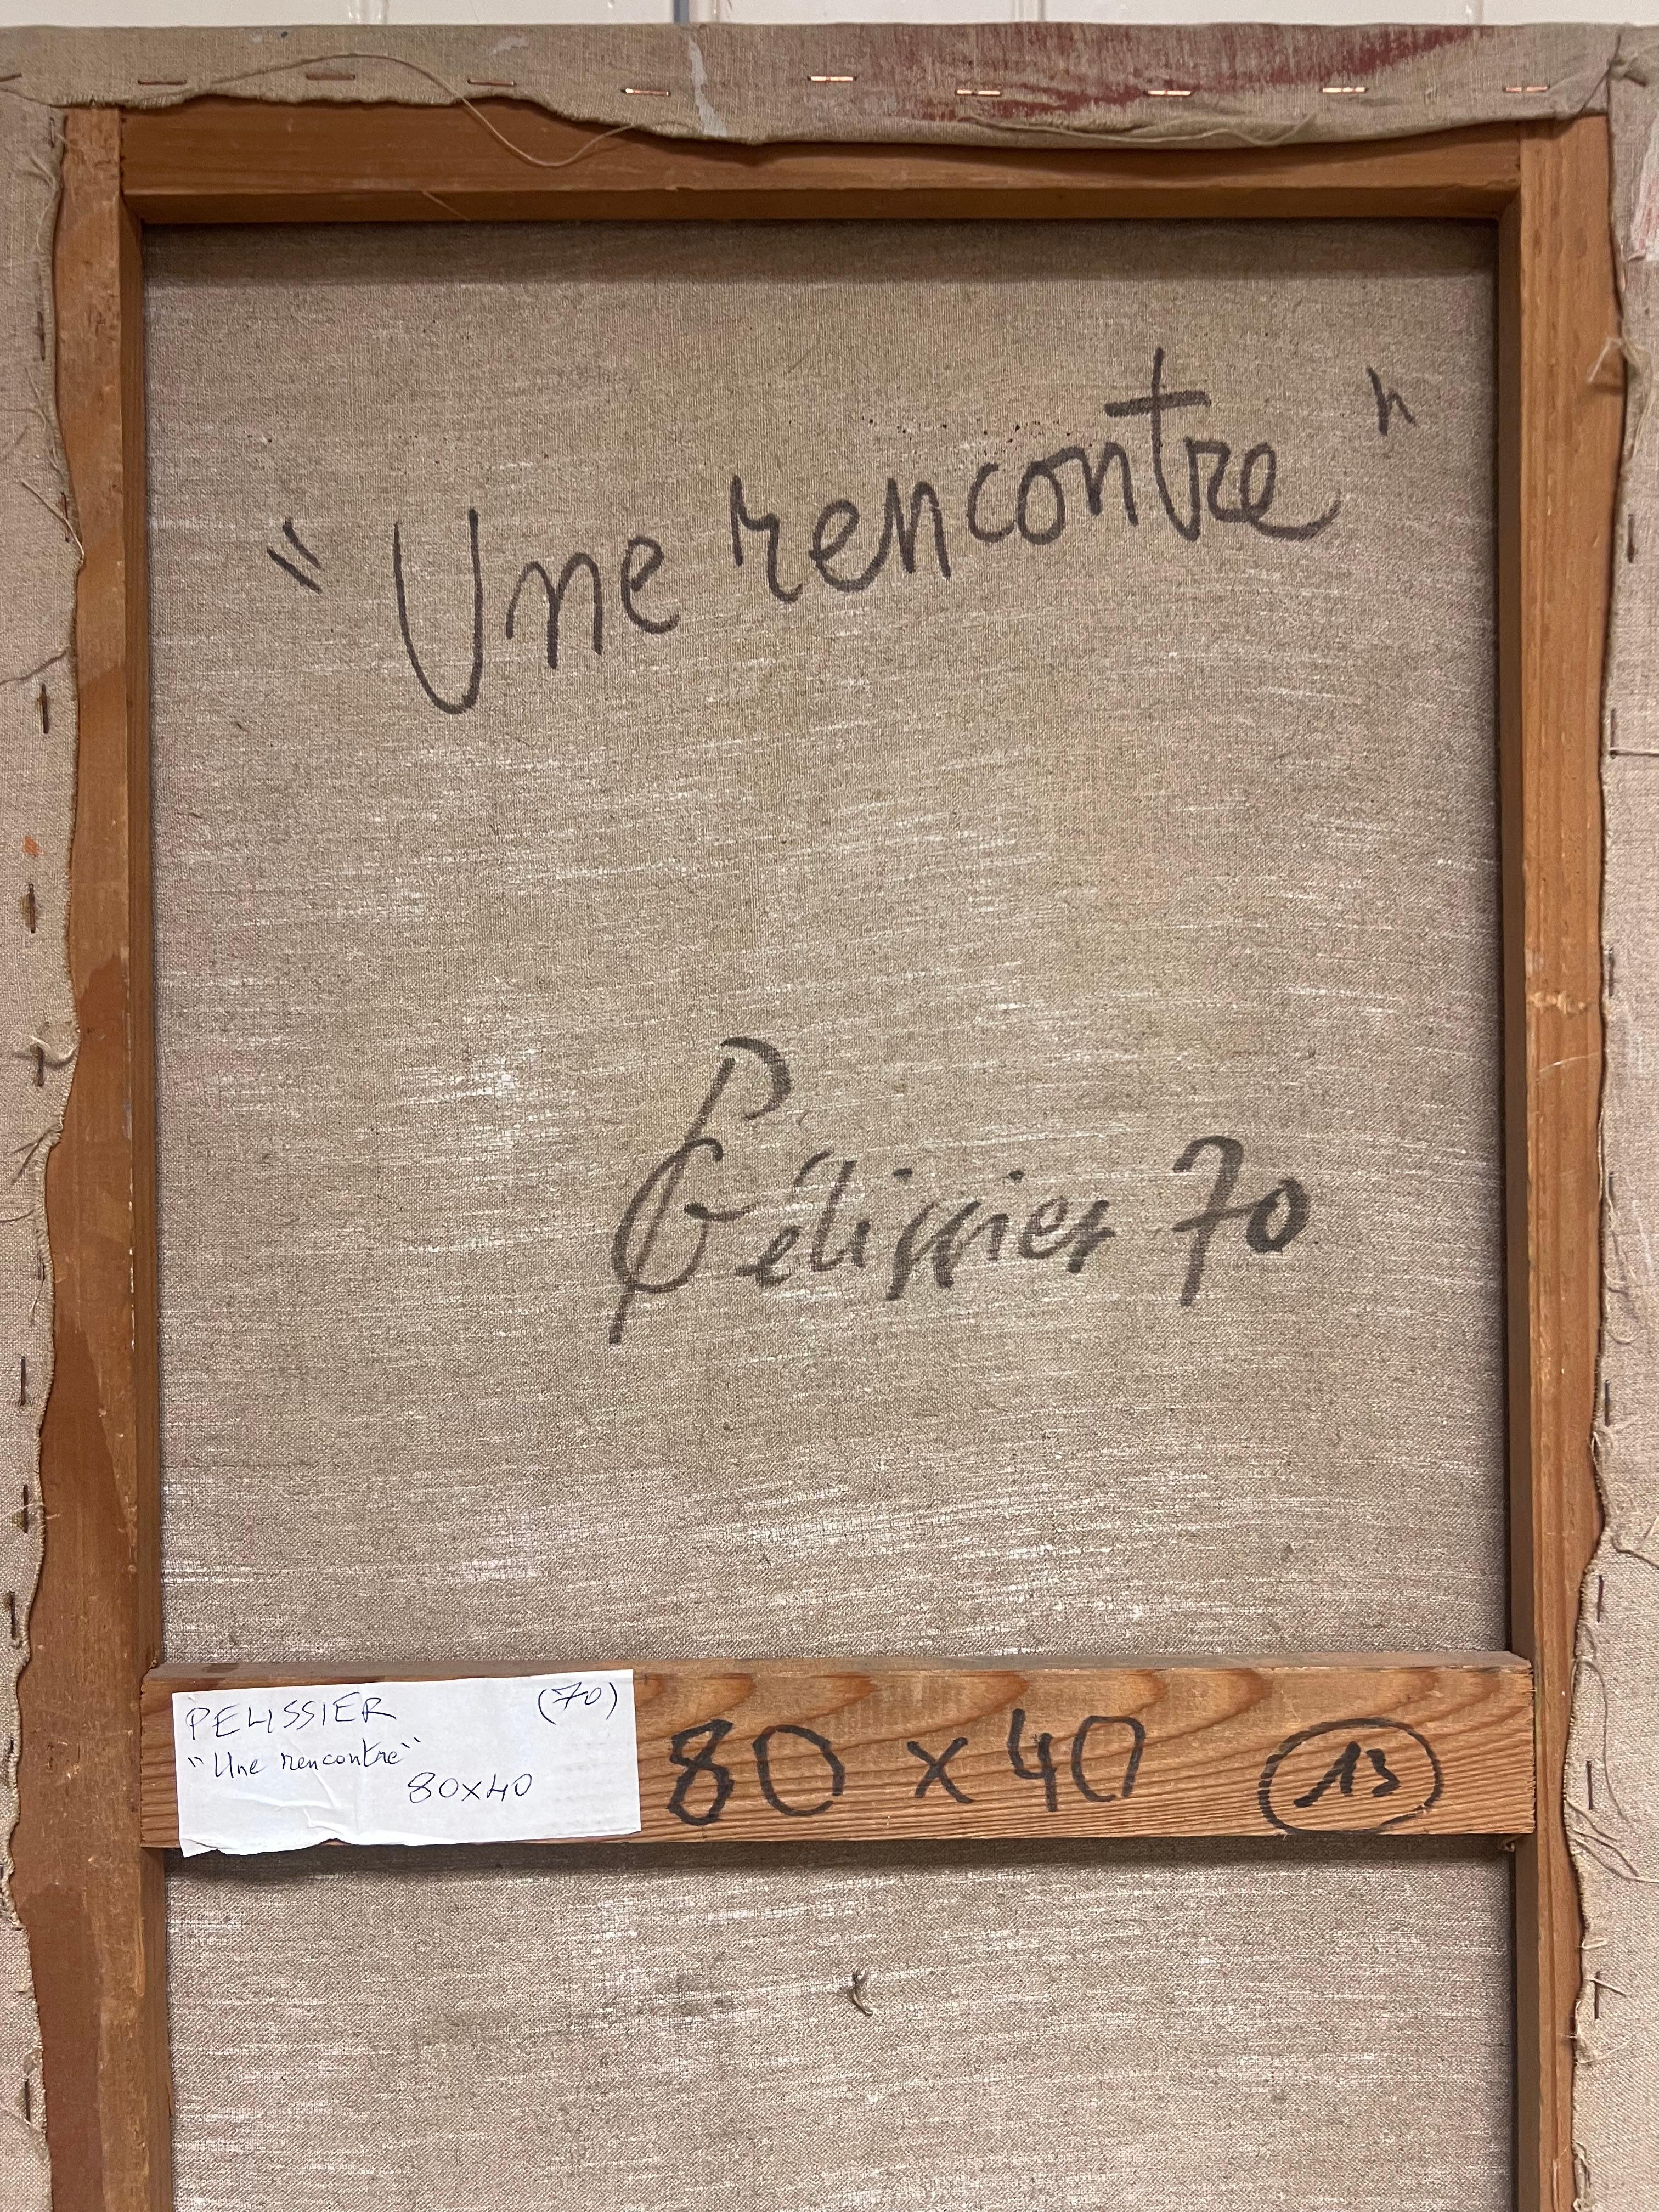 "Une rencontre"
Pélissier 70
PELISSIER (70)
"Une rencontre"
80x40
80 x 40 13